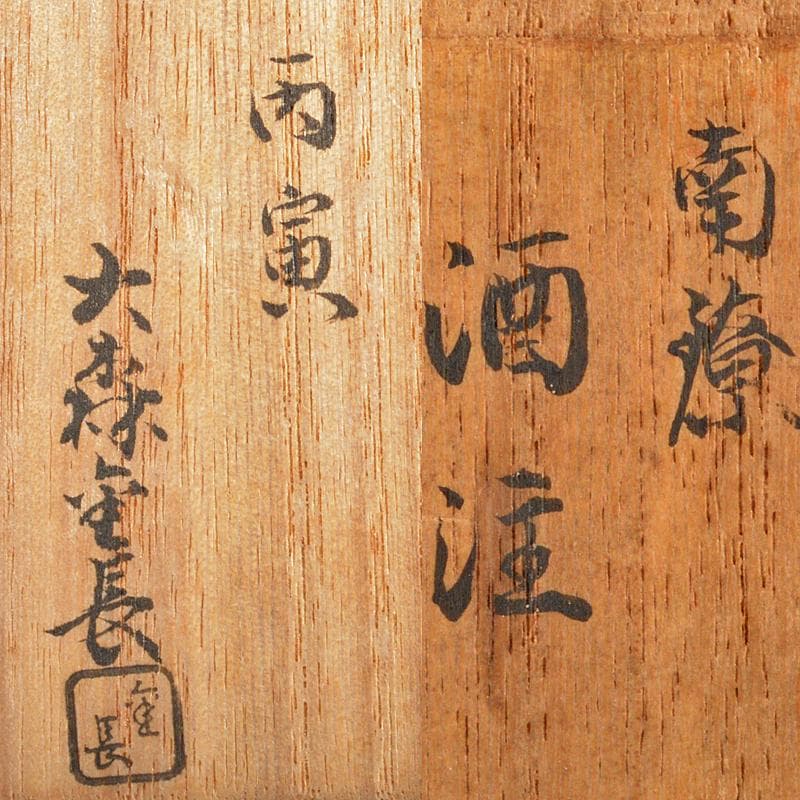 南鐐
酒注
丙寅
大森金長
金長